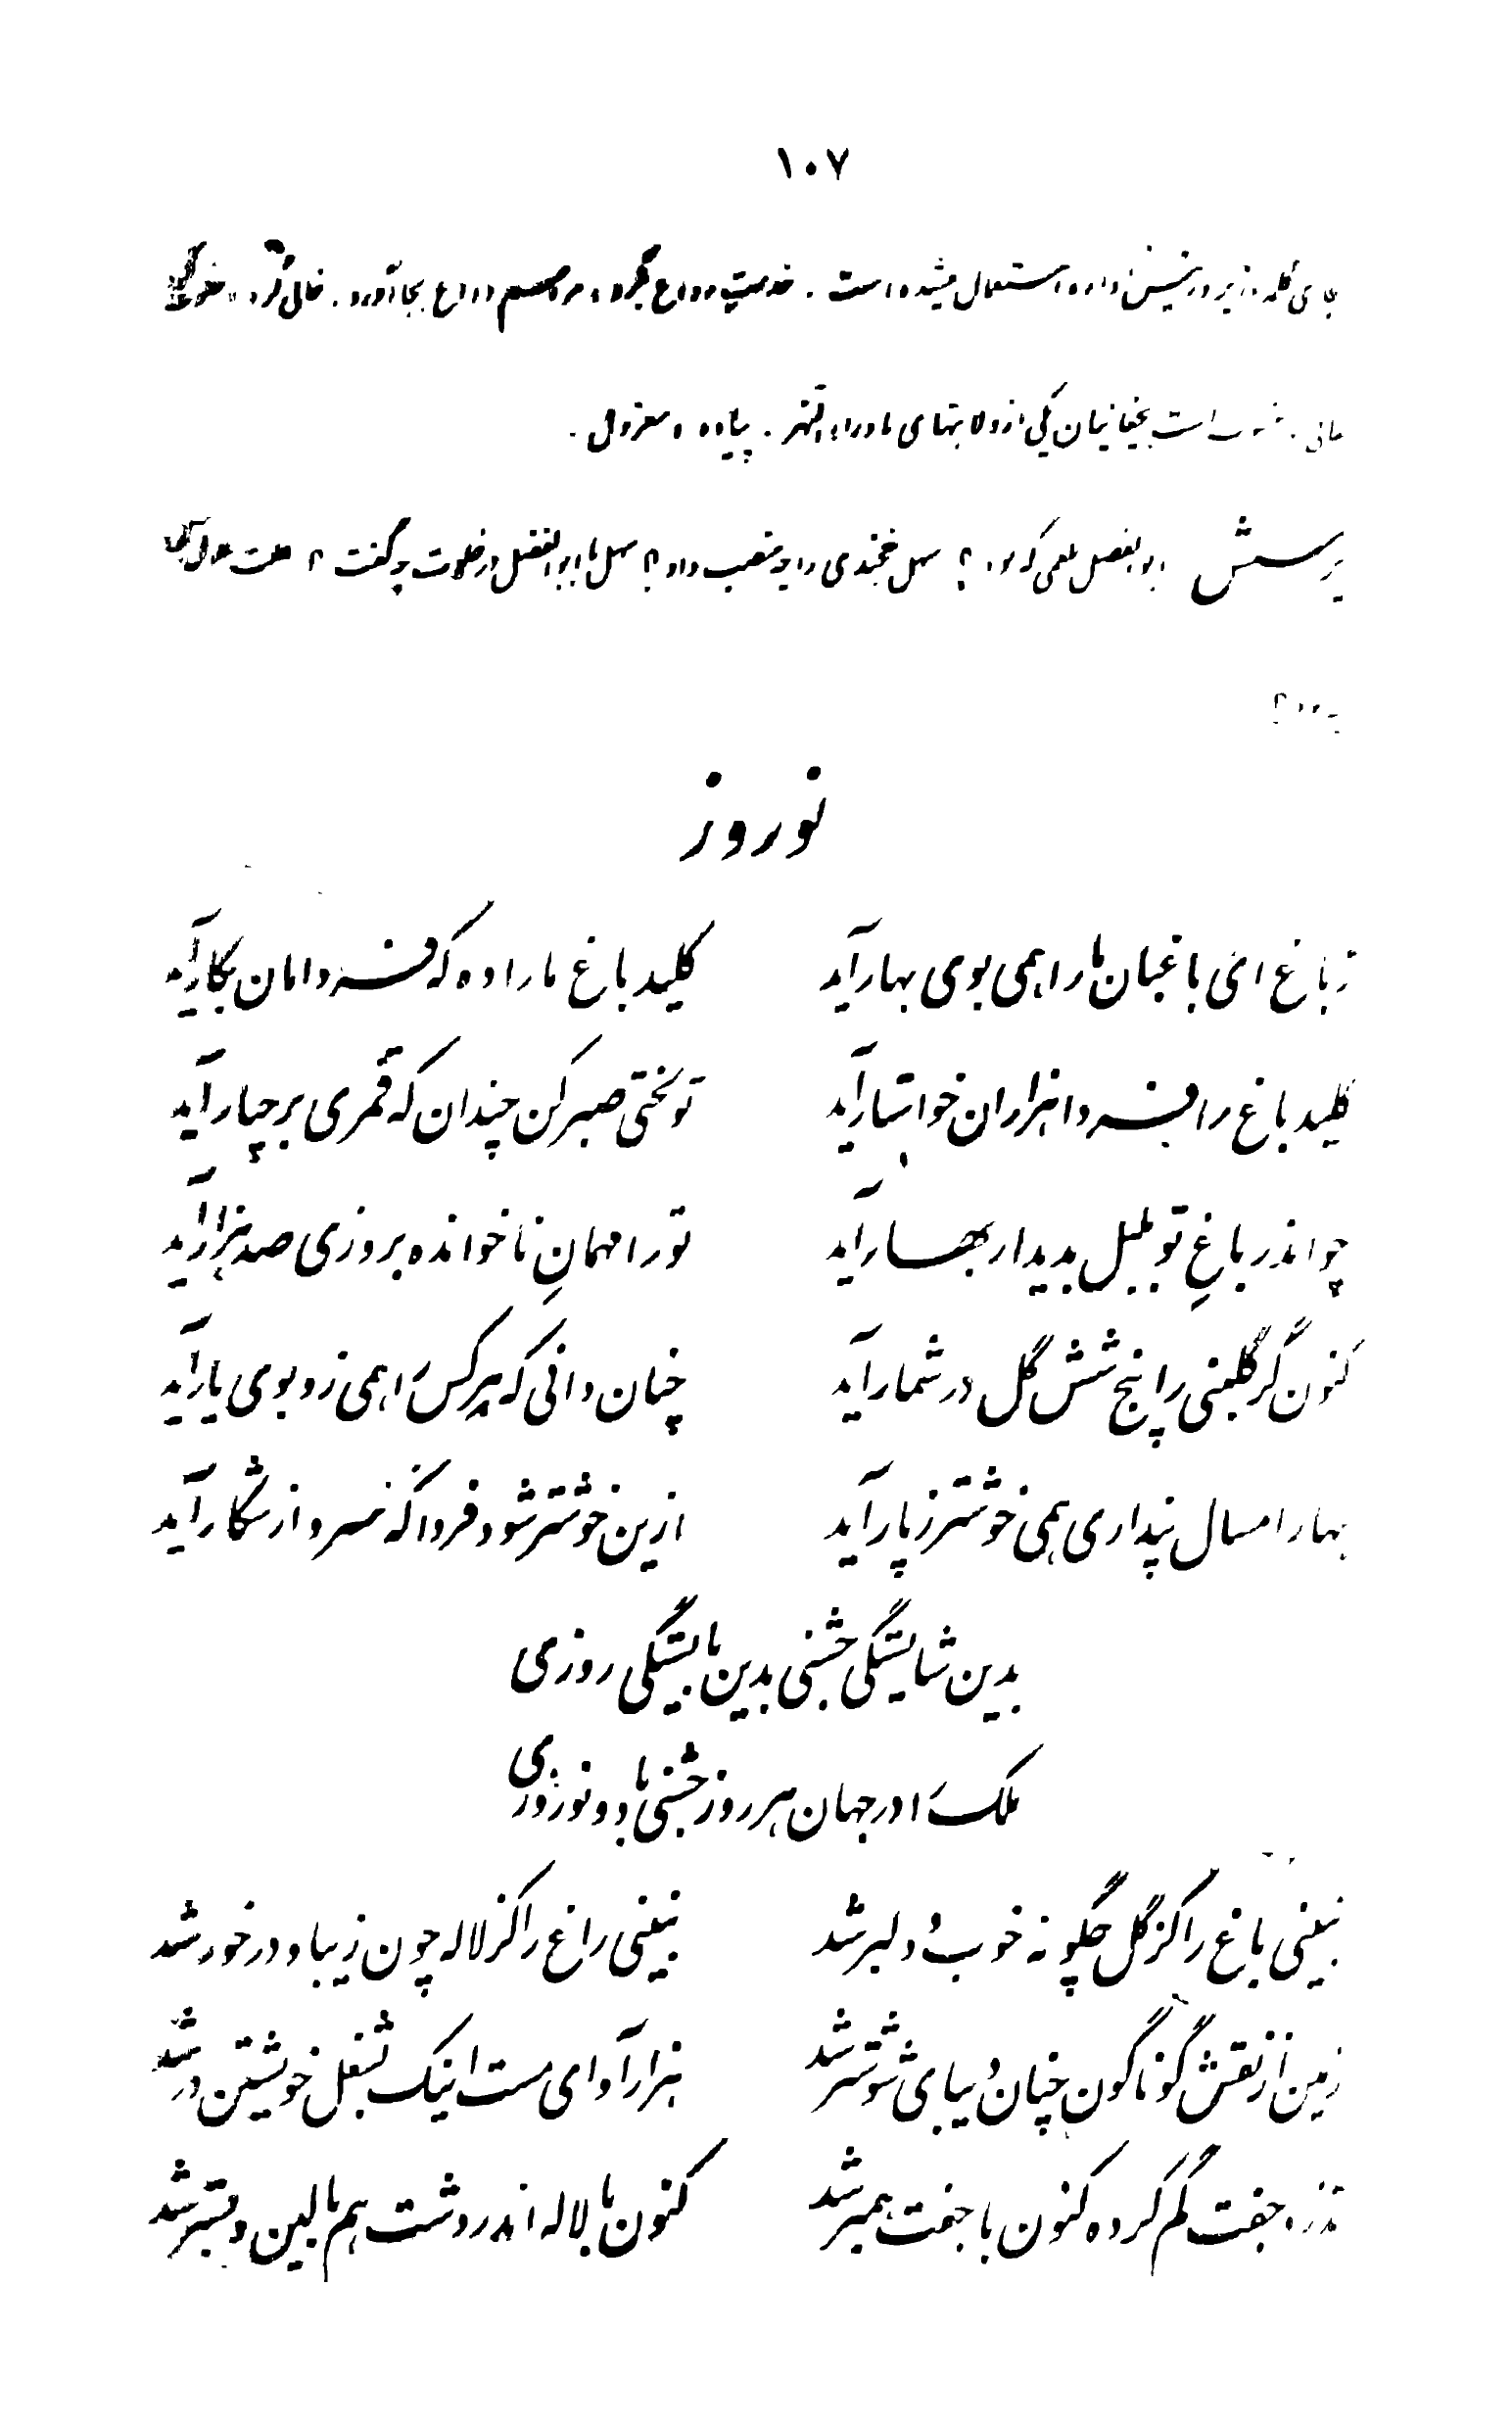 ۱۰۷
بجای کلمه وزیر در پیش داده استعمال میشده است . خدمت وداع بکرد ، مراسم وداع بجا آورد . خالی کرد ، خلوت
است بچغانیان یکی از ولایتهای ماوراء النهر . پیاده ، معزول .
پرسش ابوالفضل بلعمی که بود ؟ سهل خجندی را چه منصب داد ؟ سهل با ابوالفضل در خلوت چه گفت ؟ علت
نوروز
ز باغ ای باغبان ما را همی بوی بهار آید کلید باغ ما را ده که فردامان بکار آید
کلید باغ را فردا هزاران خواستار آید تو لختی صبر کن چندان که قمری بر چنار آید
چو اندر باغِ تو بلبل بدیدار بهار آید تو را مهمانِ ناخوانده بروزی صد هزار آید
کنون گر گلبنی را پنج شش گل در شمار آید چنان دانی که هر کس را همی زو بوی یار آید
بهار امسال پنداری همی خوشتر ز پار آید ازین خوشتر شود فردا که خسرو از شکار آید
بدین شایستگی جشنی بدین بایستگی روزی
ملک را در جهان هر روز جشنی باد و نوروزی
ببینی باغ را کز گل چگونه خوب و دلبر شد ببینی راغ را کز لاله چون زیبا و درخور شد
زمین از نقش گوناگون چنان دیبای ششتر شد هزار آوای مست اینک بشغل خویشتن در شد
تذرو جفت گم کرده کنون با جفت همبر شد کنون با لاله اندر دشت هم بالین و بستر شد